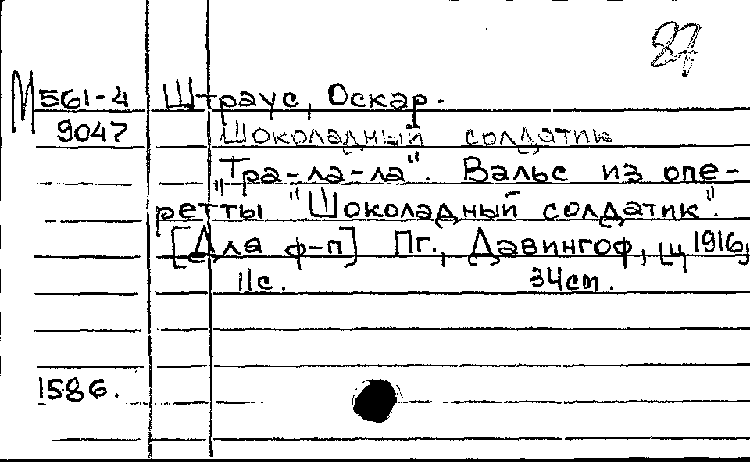 87
М 561-4 Штраус, Оскар.
9047 Шоколадный солдатик
"Тра-ла-ла". Вальс из опе-
ретты "Шоколадный солдатик".
[Для ф-п] Пг., Давингоф, [ц 1916]
11с. 34см.
1586.